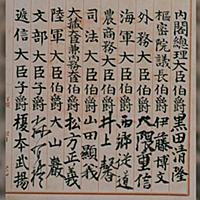 内閣總理大臣伯爵黒田清隆
樞密院議長伯爵伊藤博文
外務大臣伯爵大隈重信
海軍大臣伯爵西郷従道
農商務大臣伯爵井上馨
司法大臣伯爵山田顯義
大藏大臣兼内務大臣伯爵松方正義
陸軍大臣伯爵大山巖
文部大臣子爵森有禮
遞信大臣子爵榎本武揚